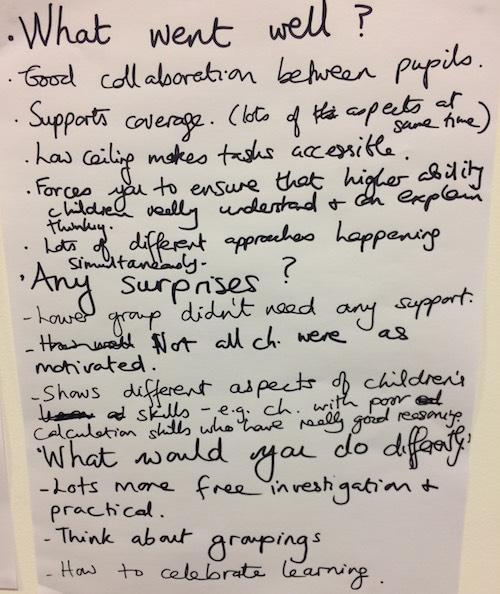 · What went well?
· Good collaboration between pupils.
· Supports coverage. (lots of aspects at
same time)
· Low ceiling makes tasks accessible.
· Forces you to ensure that higher ability
children really understand + can explain
thinking.
· Lots of different approaches happening
simultaneously.
· Any surprises?
- Lower group didn't need any support.
- Not all ch. were as
motivated.
- Shows different aspects of children's
skills - e.g. ch. with poor
calculation skills who have really good reasoning.
· What would you do differently?
- Lots more free investigation +
practical.
- Think about groupings
- How to celebrate learning.